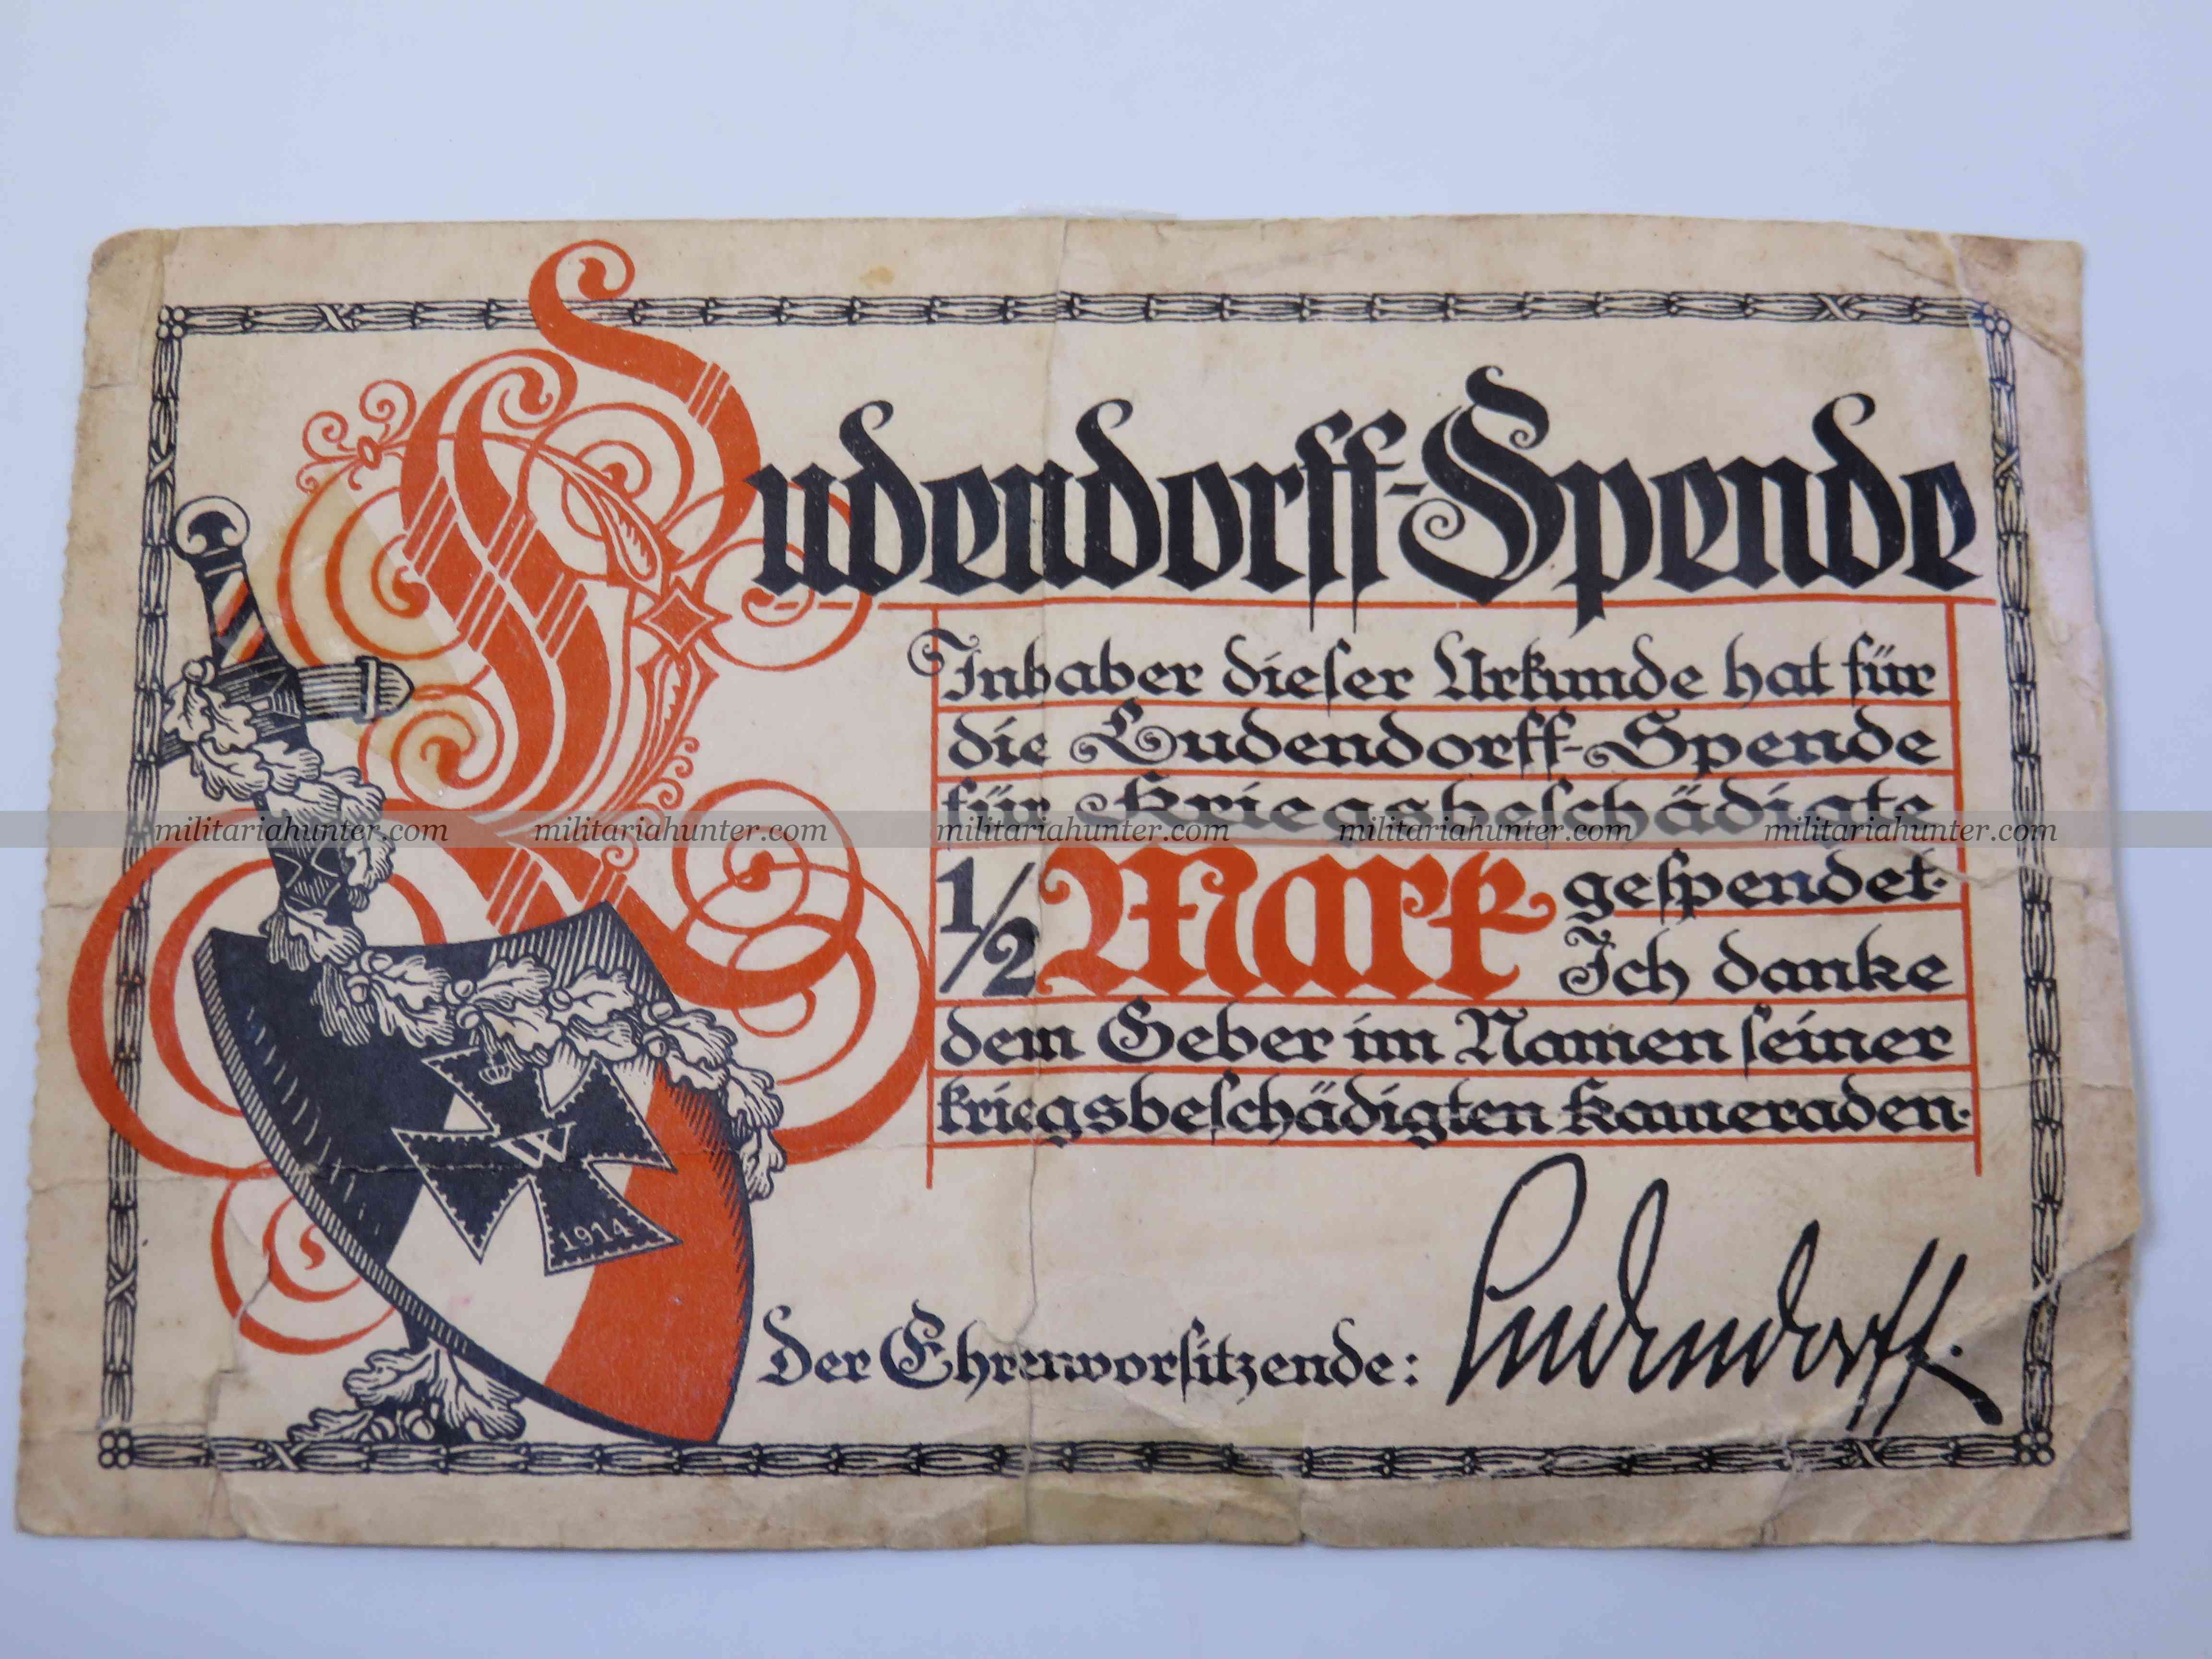 Ludendorff-Spende
Inhaber dieser Urkunde hat für
die Ludendorff-Spende
für Kriegsbeschädigte
1/2 Mark gespendet.
Ich danke
dem Geber im Namen seiner
kriegsbeschädigten Kameraden.
W
1914
Der Ehrenvorsitzende: Ludendorff.
militariahunter.com militariahunter.com militariahunter.com militariahunter.com militariahunter.com